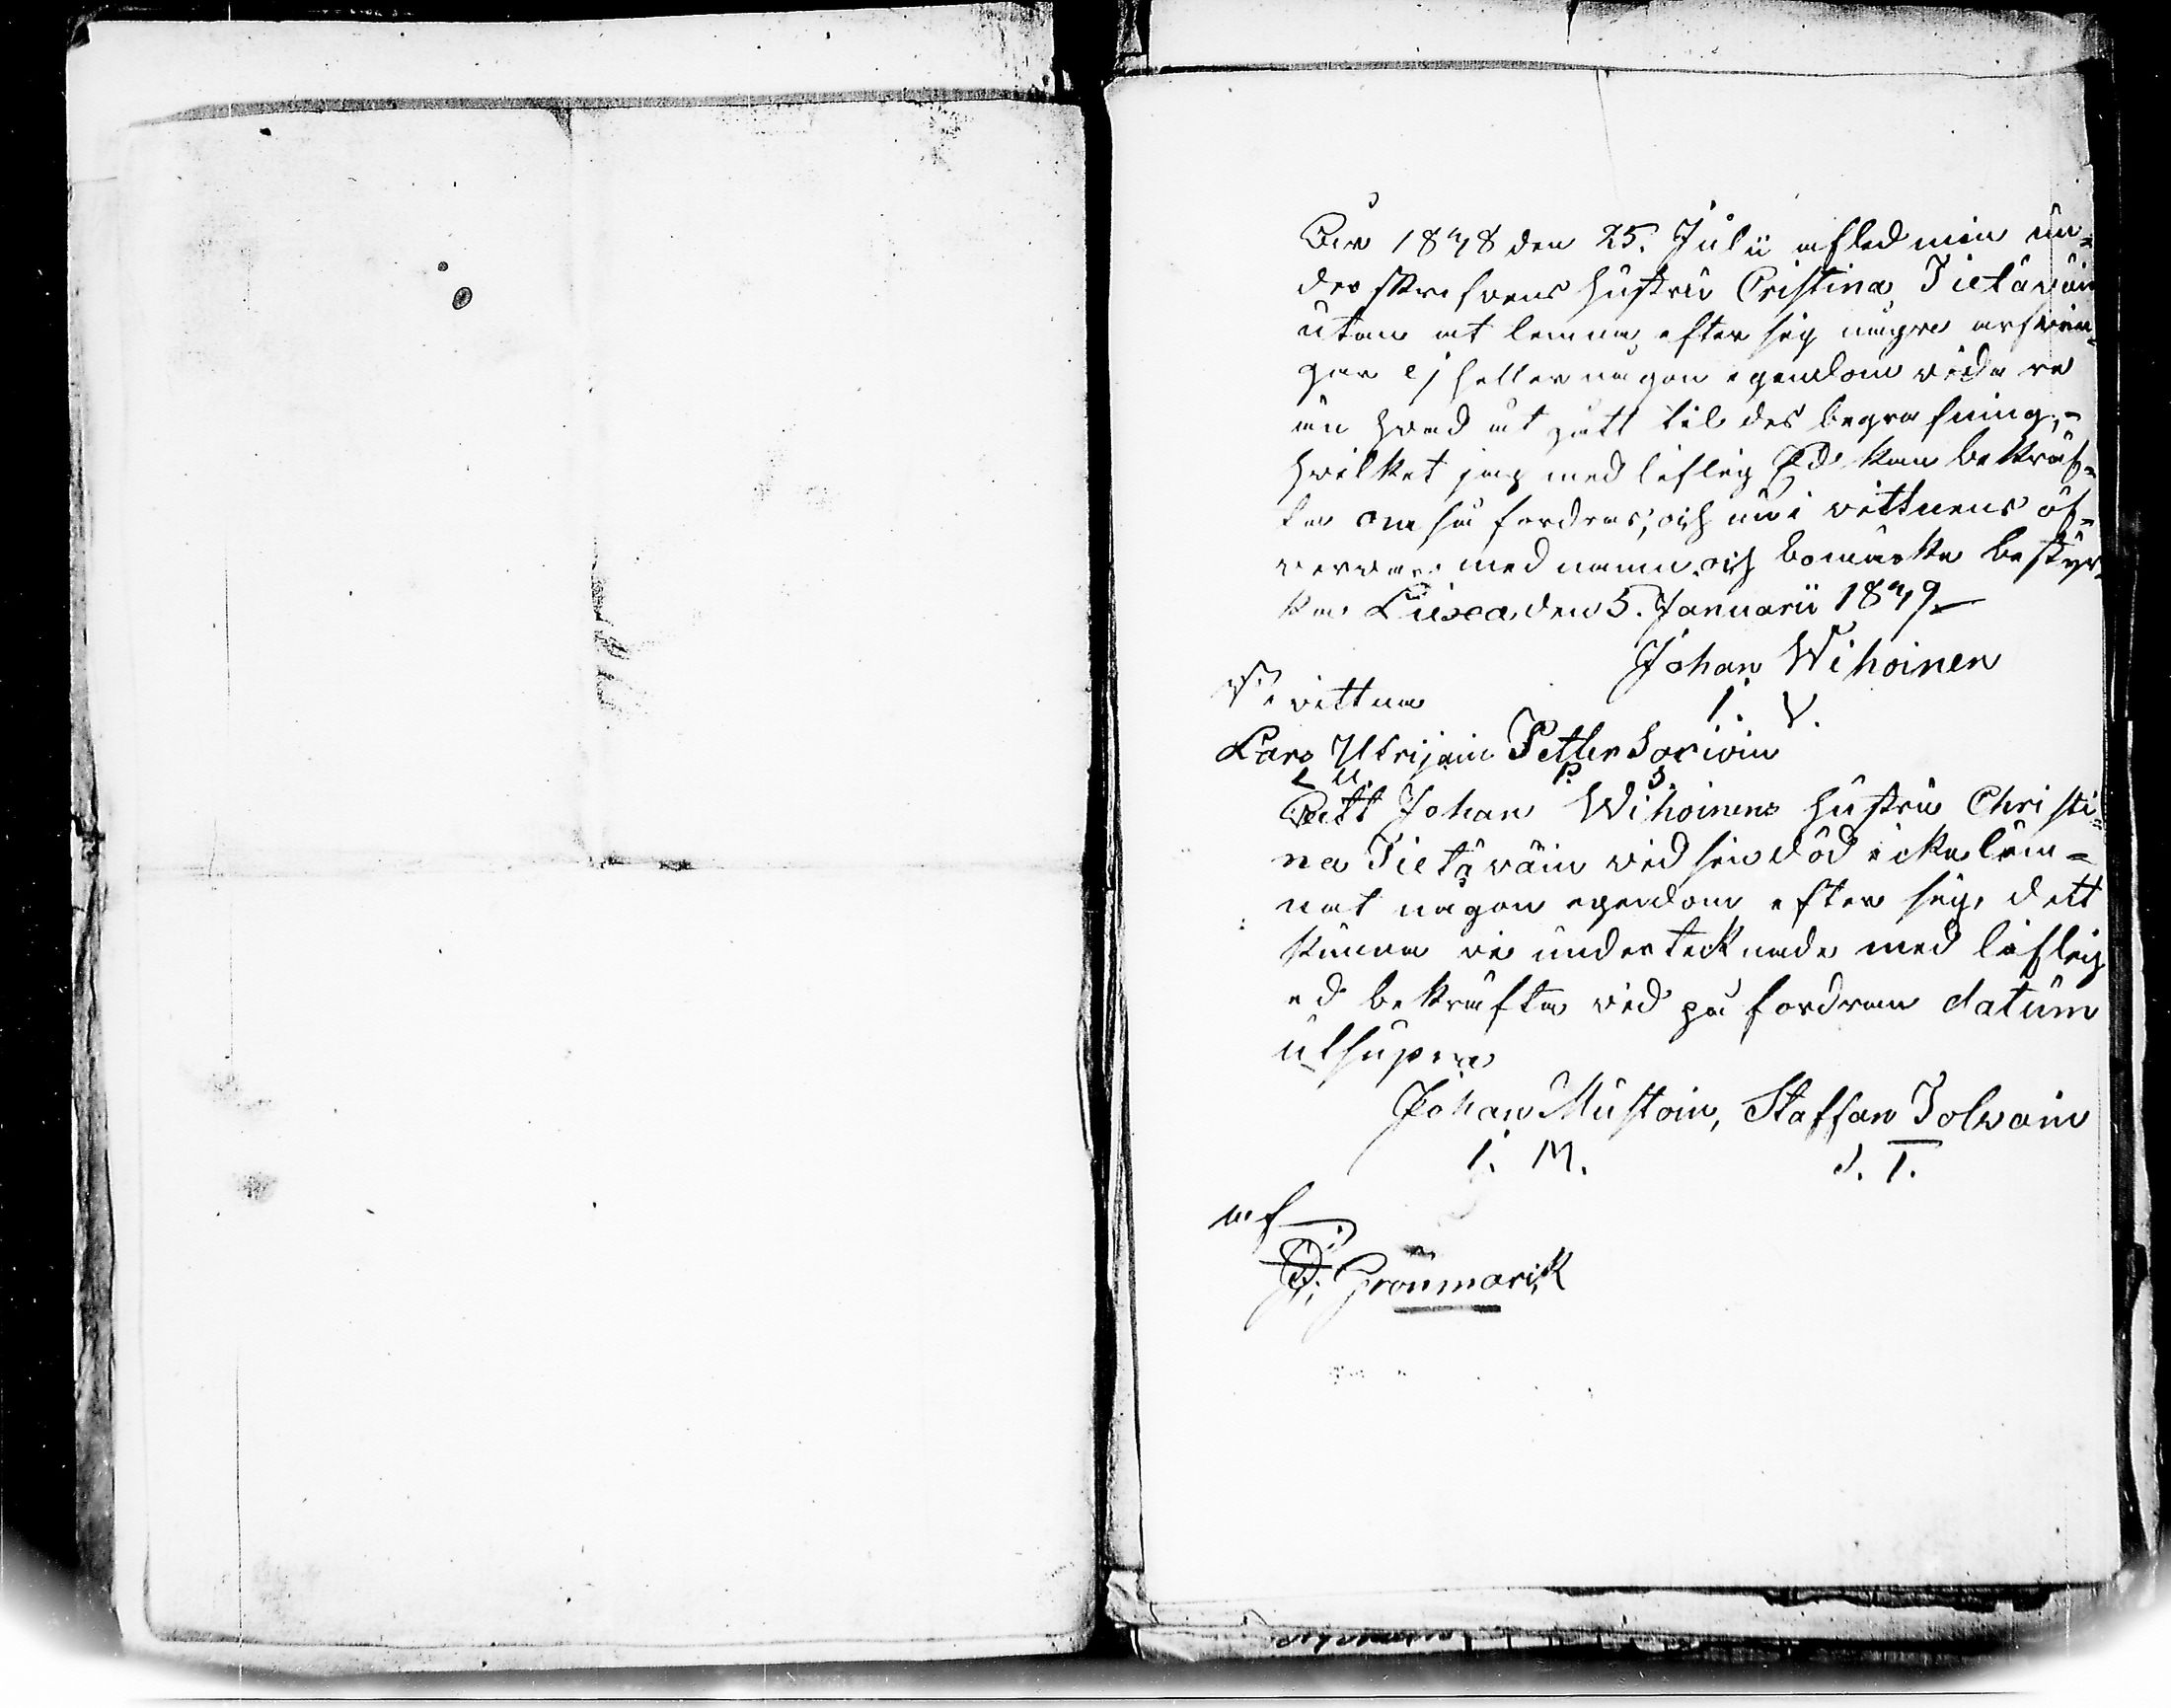 Åhr 1848 den 25. Julii afled min un-
derskrefvens hustru Cristina Tietäväin
utan at lemna efter sig några arfvin-
gar ej heller nagon egendom vidare
än hvad ut gått til des begrafning,-
hvilket jag med liflig Ed kan bekräf-
ta om så fordras, och nu i vittnens öf-
vervaro med namn och bomärke bestyr-
ka Liixa den 5. Januarii 1849
Johan Wihoinen
I. V.
Vi vittna
Lars Ulrijain Petter Sorivin
L U. P. S.
Att Johan Wihoinens hustru Christi-
na Tietäväin vid sin död icke läm-
nat nagon egendom efter sig, dett
kunna vi undertecknade med liflig
ed bekräfta vid på fordran datum
utsupra
Johan Mustoin, Staffan Tolvain
I. M. S. T.
af
P. Grönmarck